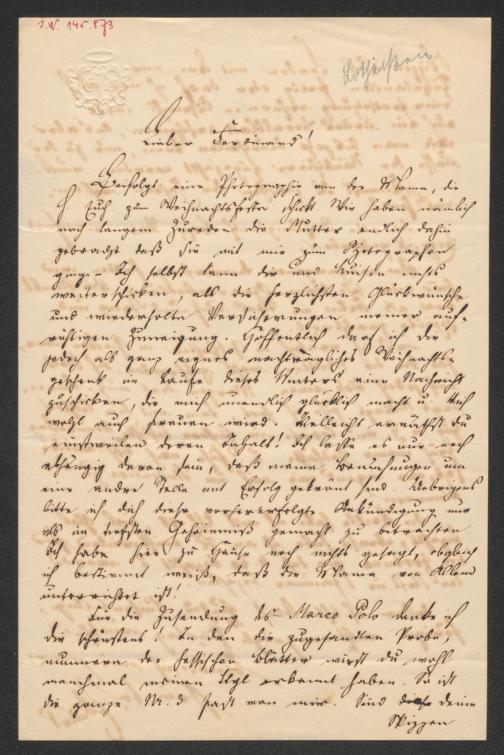 I.N. 145.873
Lotheißen
Lieber Ferdinand!
Beifolgt eine Photographie von der Mama, die
sie Euch zum Weihnachtsfeste schickt. Wir haben nämlich
nach langem Zureden die Mutter endlich dahin
gebracht daß sie mit mir zum Photographen
ging. Ich selbst kann dir und nichts
weiterschicken, als die herzlichsten Glückwünsche
und wiederholte Versicherungen meiner auf-
richtigen Zuneigung. Hoffentlich darf ich dir
jedoch als ganz eignes nachträgliches Weihnachts-
geschenk im Laufe dieses Winters eine Nachricht
zuschicken, die mich unendlich glücklich macht u. Euch
wohl auch freuen wird. Vielleicht erräthst du
einstweilen deren Inhalt! Ich lasse es nur noch
abhängig davon sein, daß meine Bemühungen um
eine andre Stelle mit Erfolg gekrönt sind. Uebrigens
bitte ich dich diese vorher Ankündigung nur
als im tiefsten Geheimniß gemacht zu betrachten.
Ich habe hier zu Hause noch nichts gesagt, obgleich
ich bestimmt weiß, daß die Mama von Allem
unterrichtet ist!
Für die Zusendung des Marco Polo danke ich
dir schönstens! In den dir zugesandten Probe-
nummern der hessischen Blätter wirst du wohl
manchmal meinen Styl erkannt haben. So ist
die ganze Nr. 3 fast von mir. Sind deine
Skizzen